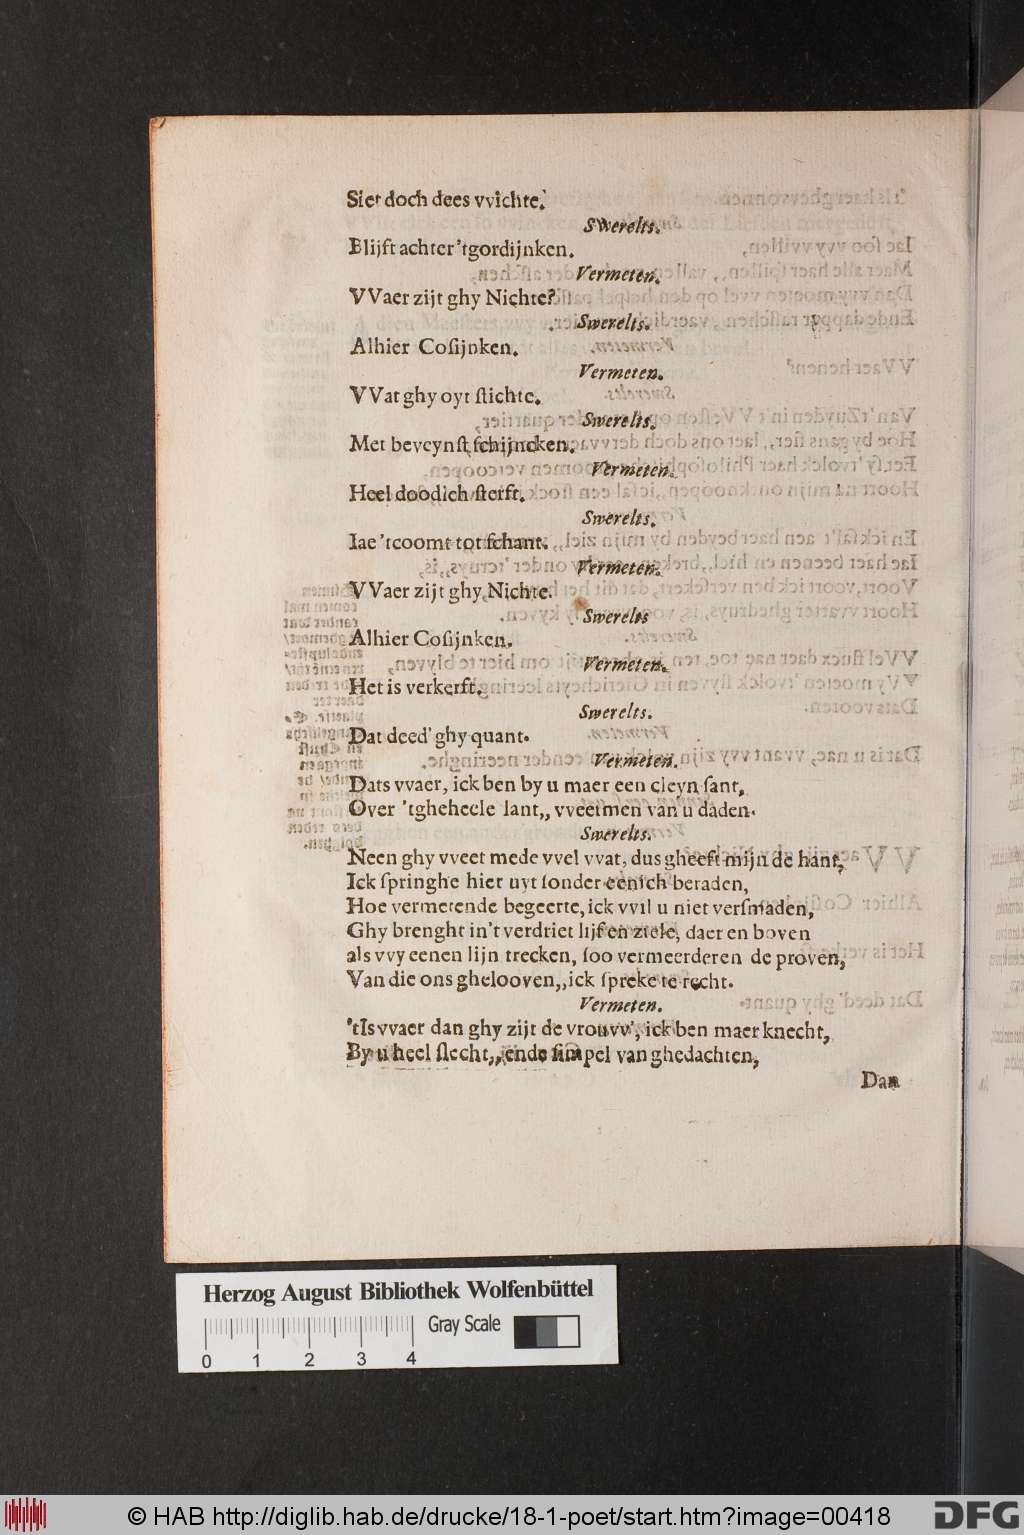 Siet doch dees vvichte.
Swerelts.
Blijft achter 'tgordijnken.
Vermeten.
VVaer zijt ghy Nichte?
Swerelts.
Alhier Cosijnken.
Vermeten.
VVat ghy oyt stichte.
Swerelts.
Met beveynst schijncken.
Vermeten.
Heel doodich sterft.
Swerelts.
Iae 'tcoomt tot schant.
Vermeten.
VVaer zijt ghy Nichte.
Swerelts
Alhier Cosijnken.
Vermeten.
Het is verkerft.
Swerelts.
Dat deed' ghy quant.
Vermeten.
Dats vvaer, ick ben by u maer een cleyn sant,
Over 'tgheheele lant,, vveetmen van u daden.
Swerelts.
Neen ghy vveet mede vvel vvat, dus gheeft mijn de hant,
Ick springhe hier uyt sonder eenich beraden,
Hoe vermetende begeerte, ick vvil u niet versmaden,
Ghy brenght in't verdriet lijf en ziele, daer en boven
als vvy eenen lijn trecken, soo vermeerderen de proven,
Van die ons ghelooven,, ick spreke te recht.
Vermeten.
'tIs vvaer dan ghy zijt de vrouvv', ick ben maer knecht,
By u heel slecht,, ende simpel van ghedachten,
Dan
Herzog August Bibliothek Wolfenbüttel
Gray Scale
0 1 2 3 4
© HAB http://diglib.hab.de/drucke/18-1-poet/start.htm?image=00418
DFG